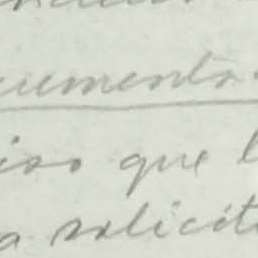 cumento
iso que l
a solicit